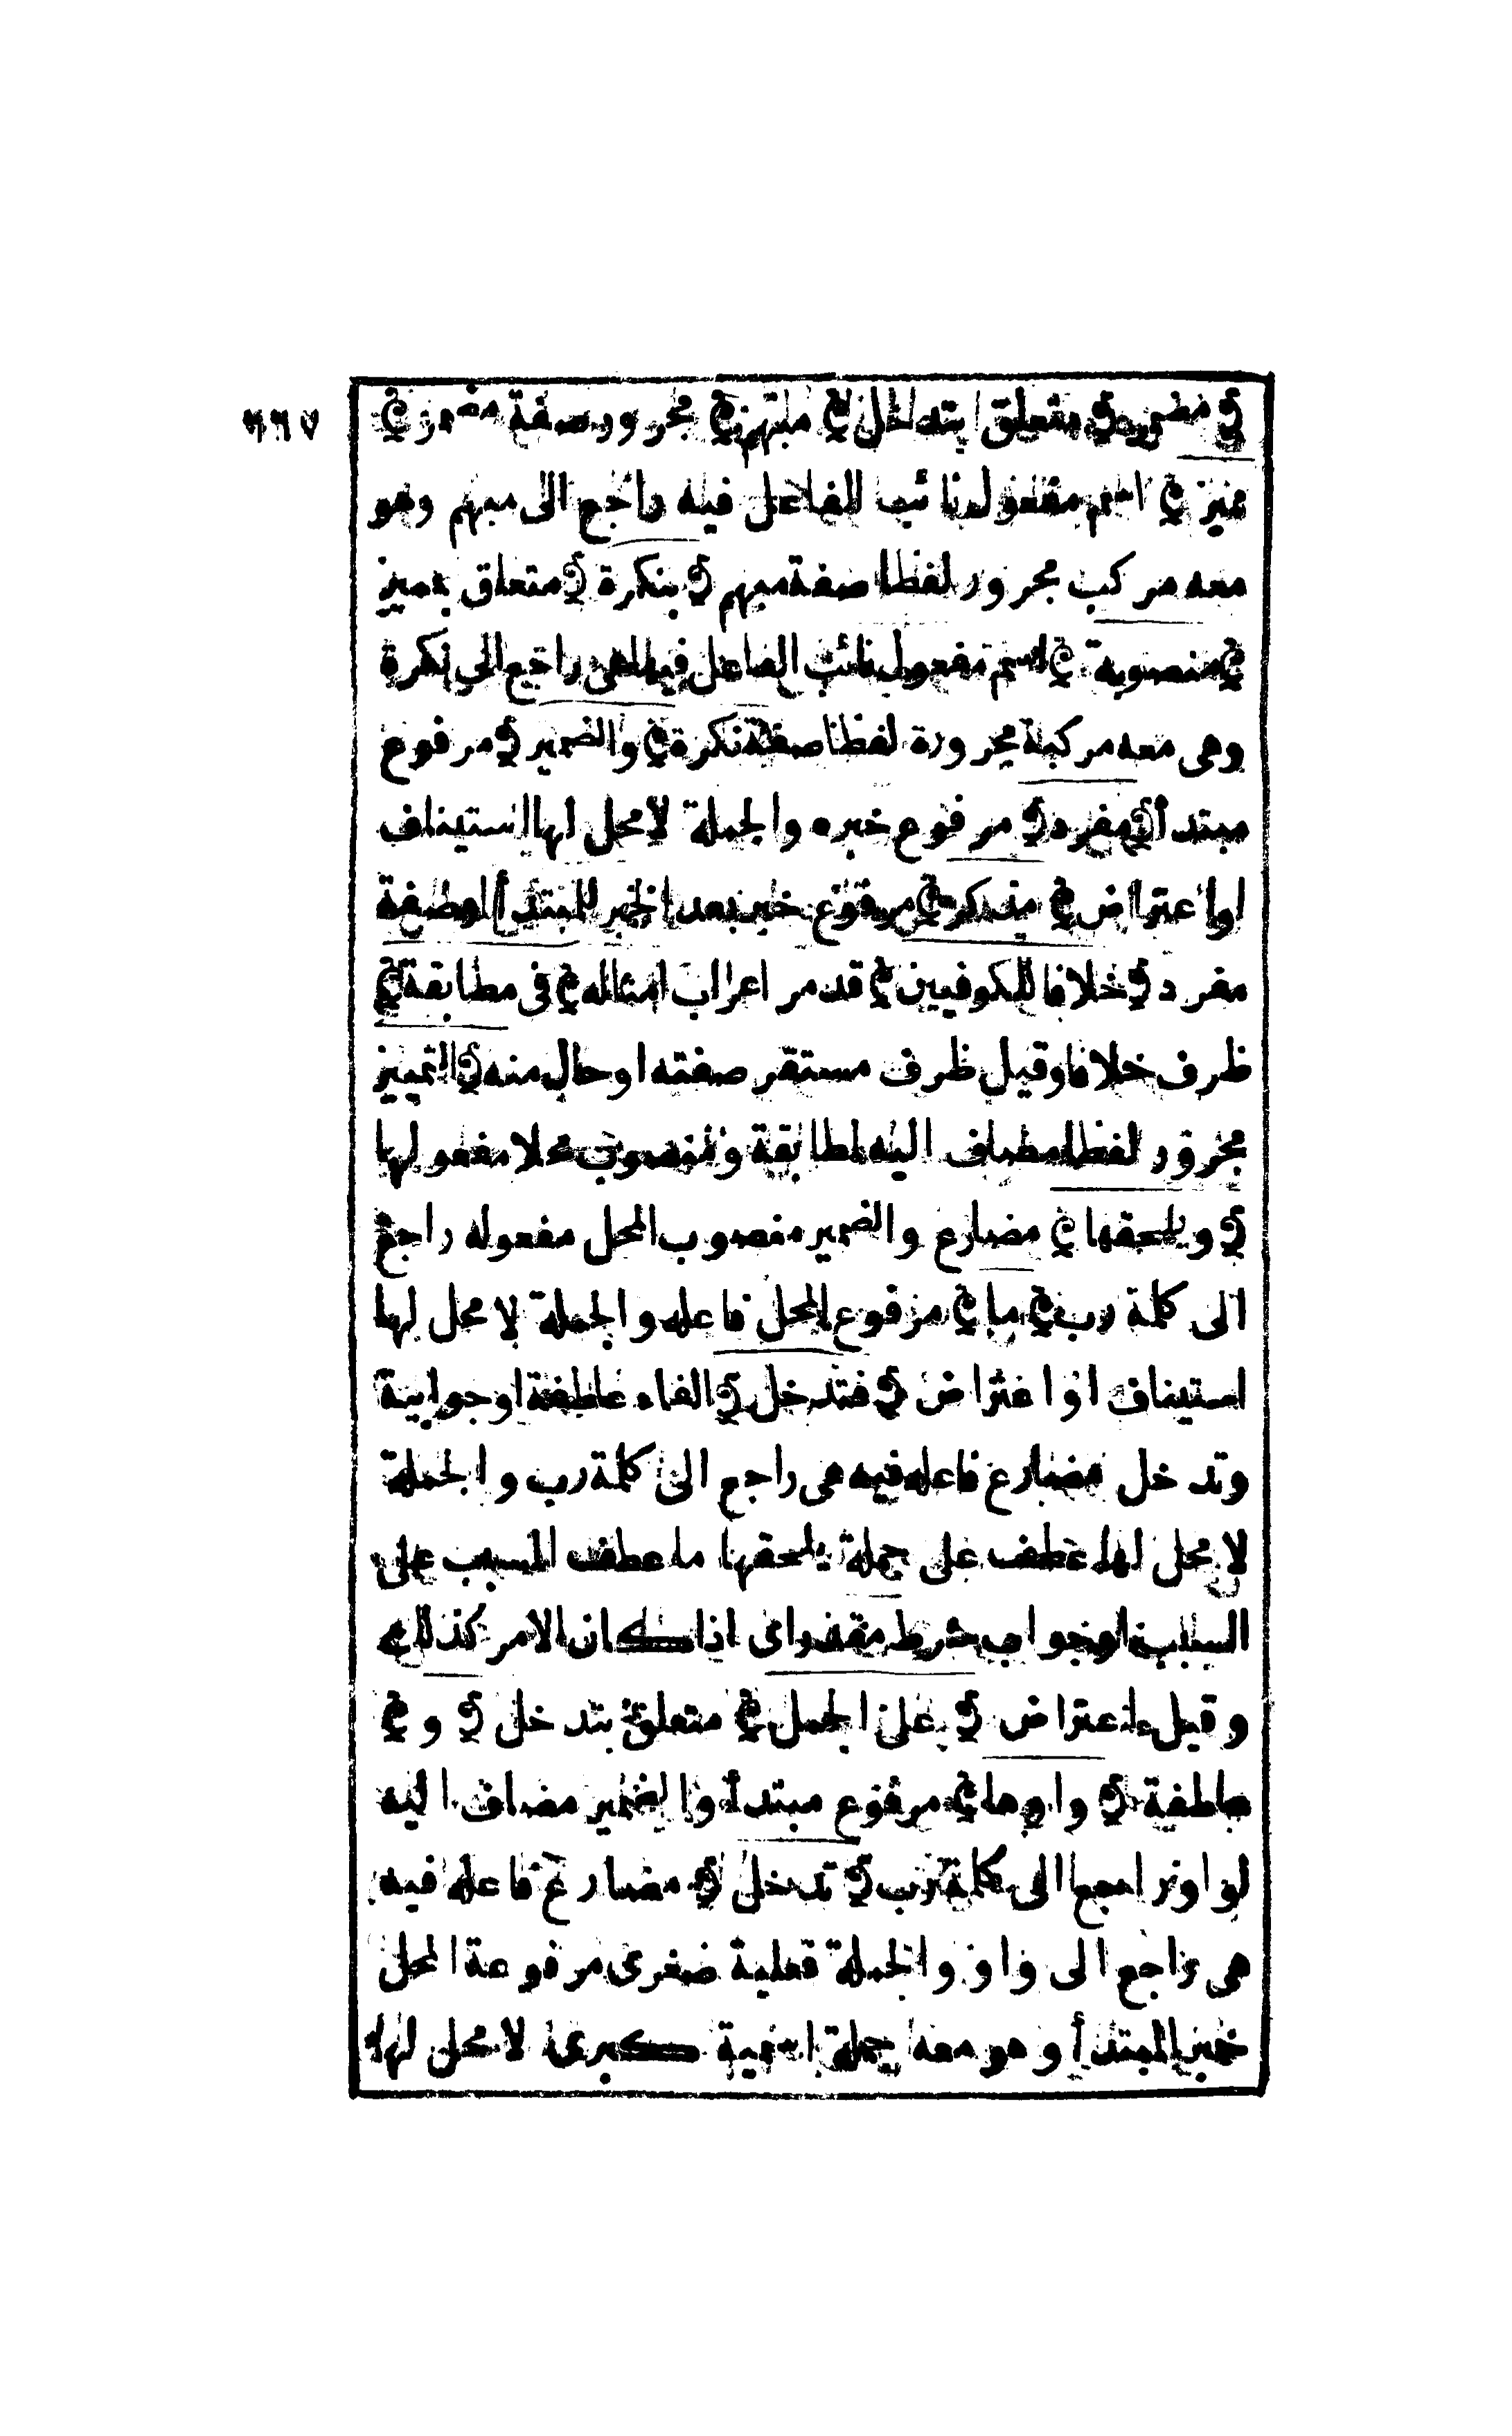 مضمر متعلق بتدخل مبهم مجرور صفة مضمر ٦٦٧
مميز اسم مفعول نائب الفاعل فيه راجع الى مبهم وهو
معه مركب مجرور لفظا صفة مبهم بنكرة متعلق بمميز
منصوبة اسم مفعول نائب الفاعل فيها هى راجع الى نكرة
وهى معه مركبة مجرورة لفظا صفة نكرة والضمير مرفوع
مبتدأ مفرد مرفوع خبره والجملة لا محل لها استيناف
او اعتراض مذكر مرفوع خبر بعد الخبر للمبتدأ او صفة
مفرد خلافا للكوفيين قد مر اعراب امثاله فى مطابقة
ظرف خلافا وقيل ظرف مستقر صفته او حال منه التمييز
مجرور لفظا مضاف اليه لمطابقة ومنصوب محلا مفعولها
ويلحقها مضارع والضمير منصوب المحل مفعوله راجع
الى كلمة رب ما مرفوع المحل فاعله والجملة لا محل لها
استيناف او اعتراض فتدخل الفاء عاطفة او جوابية
وتدخل مضارع فاعله فيه هى راجع الى كلمة رب والجملة
لا محل لها عطف على جملة يلحقها ما عطف المسبب على
السبب او جواب شرط مقدر اى اذا كان الامر كذلك
وقيل اعتراض على الجمل متعلق بتدخل و
عاطفة واوها مرفوع مبتدأ والضمير مضاف اليه
لواو راجع الى كلمة رب تدخل مضارع فاعله فيه
هى راجع الى واو والجملة فعلية صغرى مرفوعة المحل
خبر المبتدأ وهو معه جملة اسمية كبرى لا محل لها